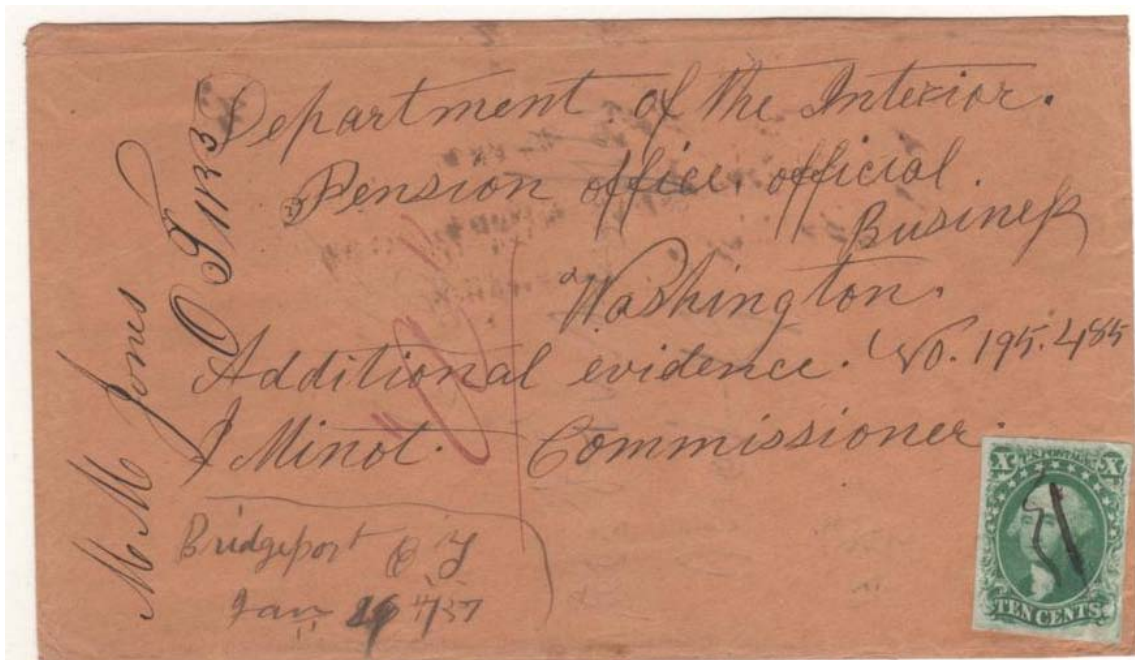 Department of the Interior.
Pension office, official
Business
Washington.
Additional evidence. No. 195.485
J Minot. Commissioner.
Bridgeport O T
Jan 57
M. M Jones
U.S. POSTAGE
X X
TEN CENTS